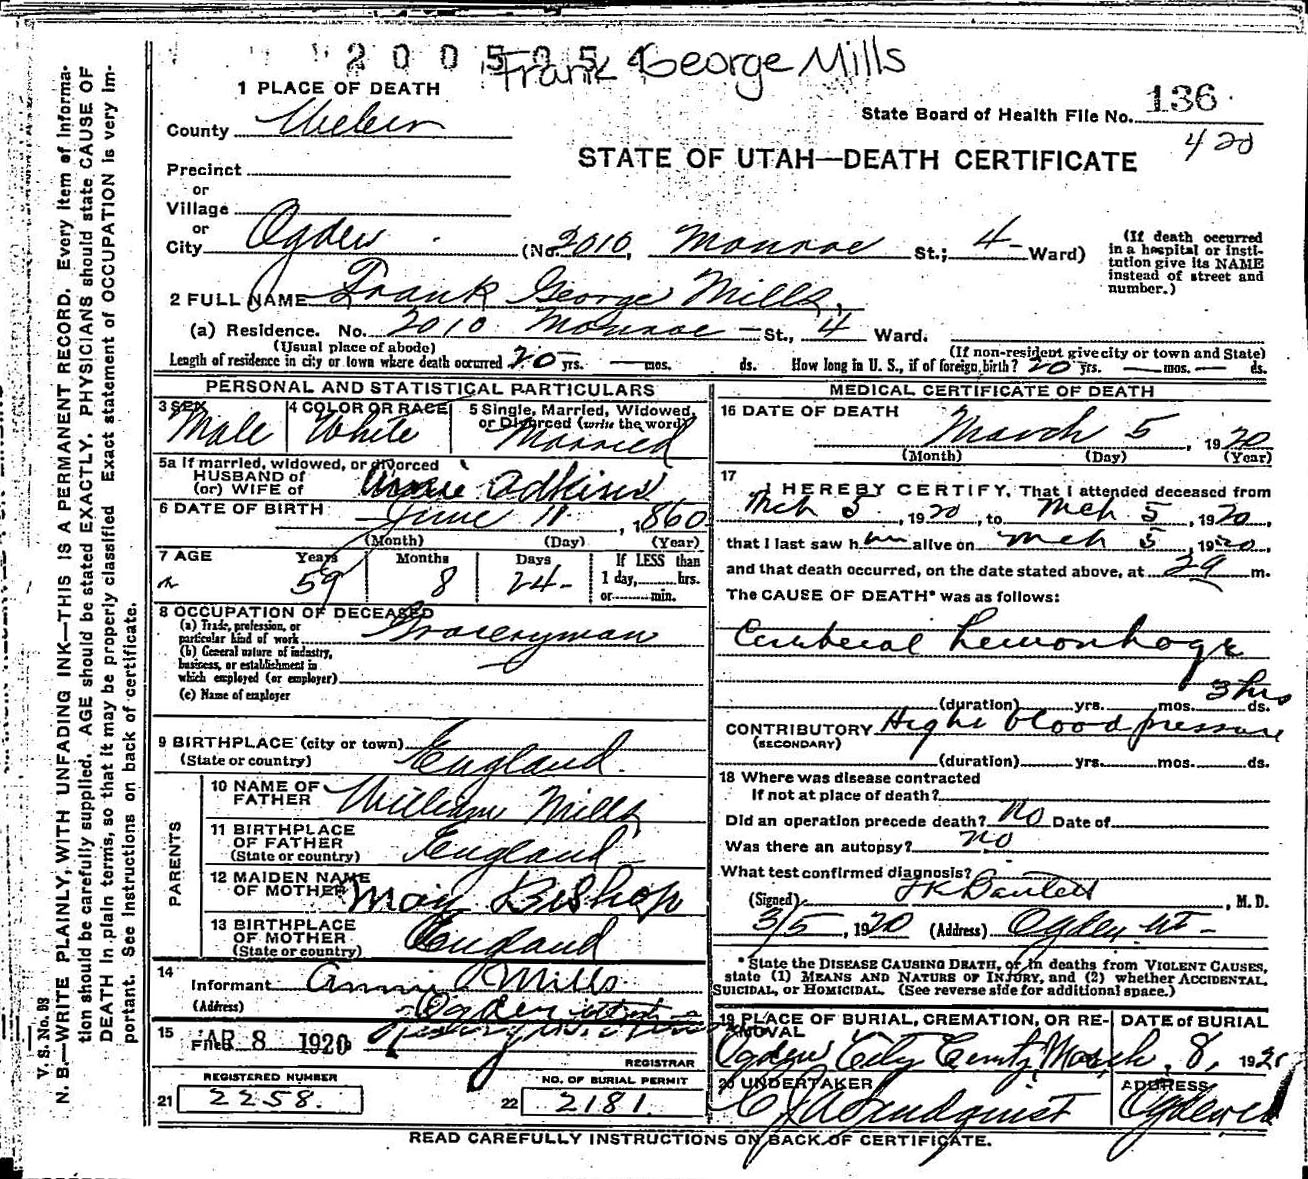 2005254
Frank George Mills
1 PLACE OF DEATH
State Board of Health File No. 136
420
County Weber
STATE OF UTAH—DEATH CERTIFICATE
Precinct
or
Village
or
City Ogden (No. 2010, Monroe St.; 4 Ward)
(If death occurred in a hospital or institution give its NAME instead of street and number.)
2 FULL NAME Frank George Mills,
(a) Residence. No. 2010 Monroe St., 4 Ward.
(Usual place of abode) (If non-resident give city or town and State)
Length of residence in city or town where death occurred 20 yrs. — mos. ds. How long in U. S., if of foreign birth? 20 yrs. — mos. — ds.
PERSONAL AND STATISTICAL PARTICULARS
3 SEX Male
4 COLOR OR RACE White
5 Single, Married, Widowed, or Divorced (write the word) Married
5a If married, widowed, or divorced
HUSBAND of
(or) WIFE of Annie Adkins
6 DATE OF BIRTH June 11, 1860
(Month) (Day) (Year)
7 AGE Years 59 Months 8 Days 24 If LESS than 1 day, hrs. or min.
8 OCCUPATION OF DECEASED
(a) Trade, profession, or particular kind of work Groceryman
(b) General nature of industry, business, or establishment in which employed (or employer)
(c) Name of employer
9 BIRTHPLACE (city or town)
(State or country) England.
PARENTS
10 NAME OF FATHER William Mills
11 BIRTHPLACE OF FATHER
(State or country) England
12 MAIDEN NAME OF MOTHER May Bishop
13 BIRTHPLACE OF MOTHER
(State or country) England
14
Informant Annie Mills
(Address) Ogden
15
Filed 8 1920
REGISTRAR
REGISTERED NUMBER
21 2258.
NO. OF BURIAL PERMIT
22 2181.
MEDICAL CERTIFICATE OF DEATH
16 DATE OF DEATH
March 5, 1920
(Month) (Day) (Year)
17
I HEREBY CERTIFY, That I attended deceased from
Mch 5, 1920, to Mch 5, 1920,
that I last saw him alive on Mch 5, 1920,
and that death occurred, on the date stated above, at m.
The CAUSE OF DEATH* was as follows:
Cerebral hemorrhage
3 hrs
(duration) yrs. mos. ds.
CONTRIBUTORY High blood pressure
(SECONDARY)
(duration) yrs. mos. ds.
18 Where was disease contracted
If not at place of death?
Did an operation precede death? No Date of
Was there an autopsy? no
What test confirmed diagnosis?
(Signed) Bartlett, M. D.
3/5, 1920 (Address) Ogden Ut
*State the DISEASE CAUSING DEATH, or in deaths from VIOLENT CAUSES, state (1) MEANS AND NATURE OF INJURY, and (2) whether ACCIDENTAL, SUICIDAL, or HOMICIDAL. (See reverse side for additional space.)
19 PLACE OF BURIAL, CREMATION, OR REMOVAL
Ogden City
DATE of BURIAL
March 8, 1920
20 UNDERTAKER
Lindquist
ADDRESS
Ogden
READ CAREFULLY INSTRUCTIONS ON BACK OF CERTIFICATE.
V. S. No. 98
N. B.—WRITE PLAINLY, WITH UNFADING INK—THIS IS A PERMANENT RECORD. Every item of information should be carefully supplied. AGE should be stated EXACTLY. PHYSICIANS should state CAUSE OF DEATH in plain terms, so that it may be properly classified. Exact statement of OCCUPATION is very important. See instructions on back of certificate.